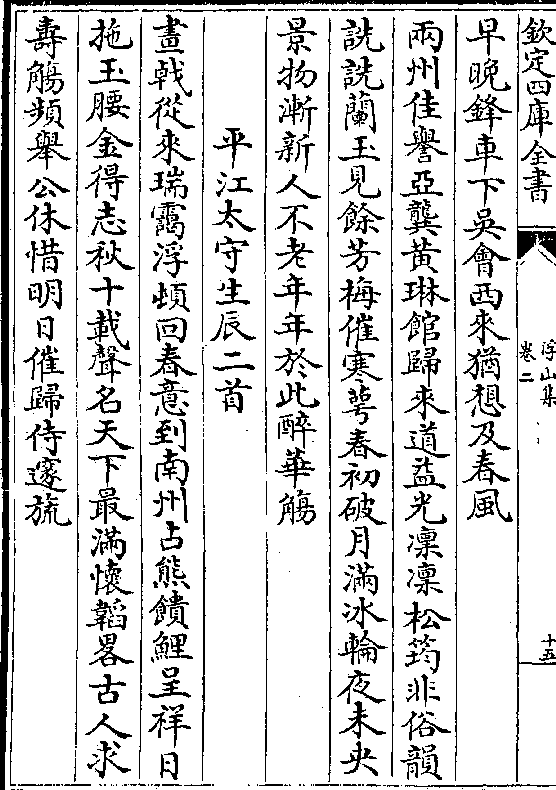 欽定四庫全書
浮山集
卷二
十五
早晚鋒車下吳會西來猶想及春風
兩州佳譽亞龔黃琳館歸來道益光凛凛松筠非俗韻
詵詵蘭玉見餘芳梅催寒萼春初破月滿冰輪夜未央
景物漸新人不老年年於此醉華觴
平江太守生辰二首
畫戟從來瑞靄浮頓回春意到南州占熊饋鯉呈祥日
拖玉腰金得志秋十載聲名天下最滿懷韜畧古人求
壽觴頻舉公休惜明日催歸侍邃旒